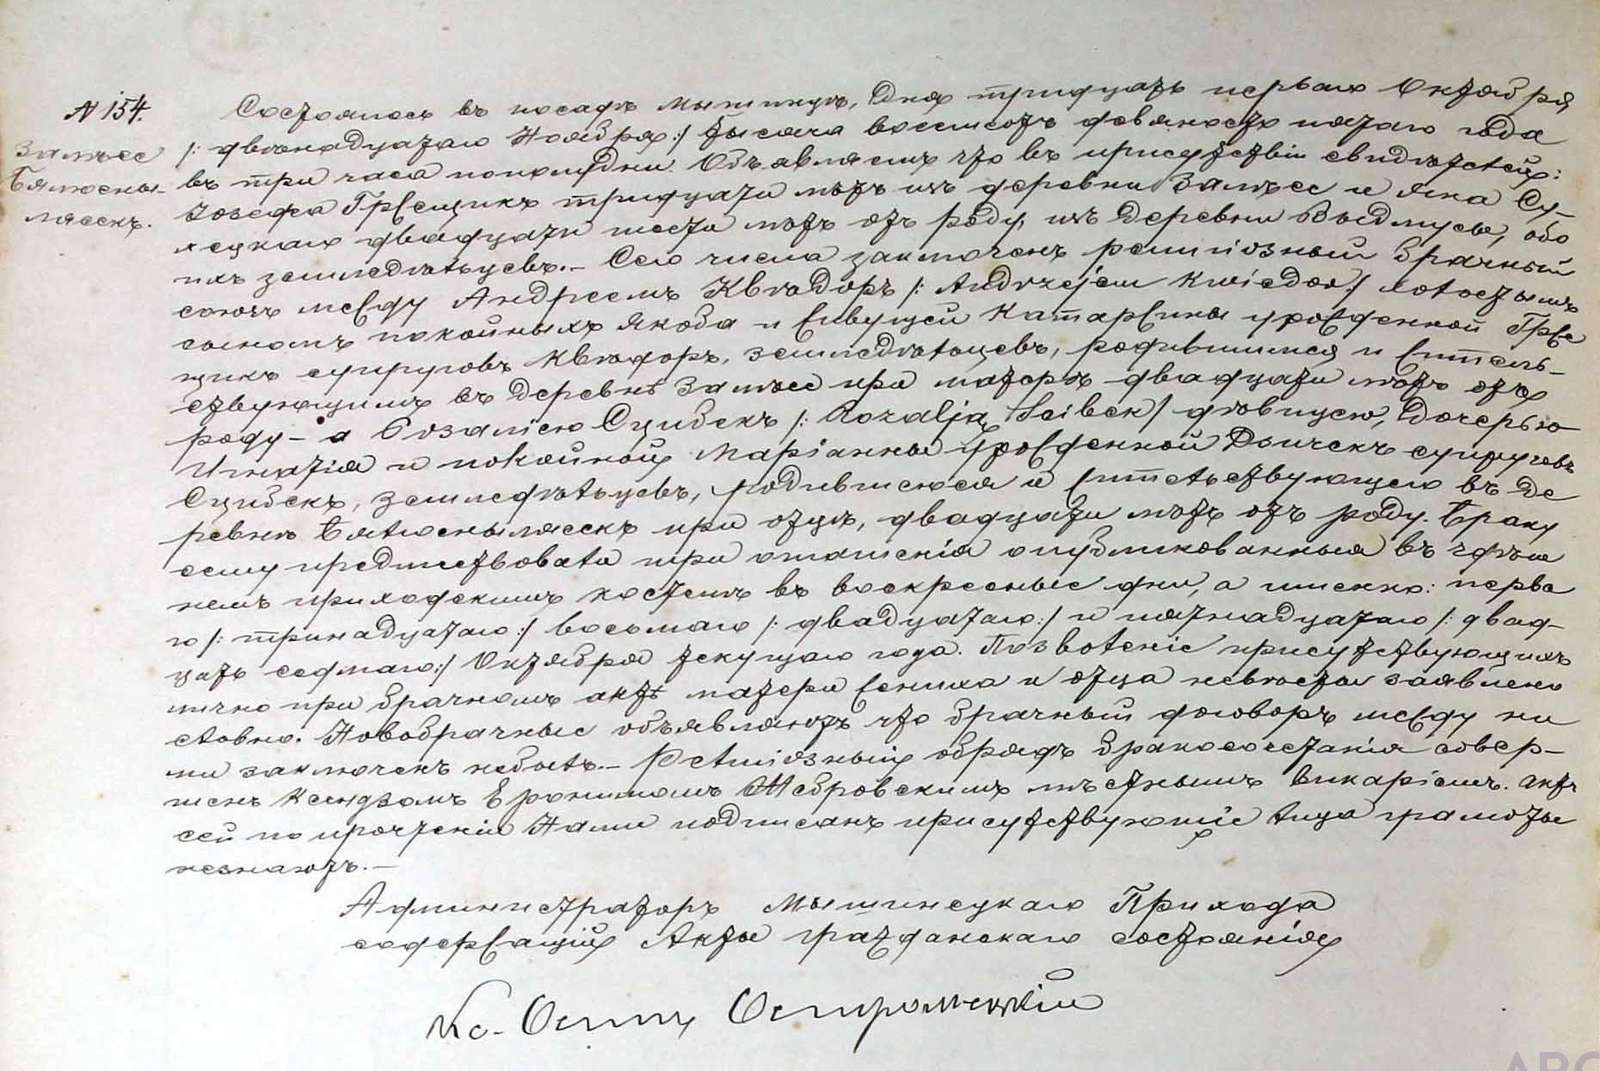 № 154.
Залѣсе
Бялюсны-
лясекъ.
Состоялось въ посадѣ Мышинцѣ, Дня тридцать перваго Октября
/: двѣнадцатаго Ноября :/ тысяча восемсотъ девяносто пятаго года
въ три часа пополудни. Объявляемъ что въ присутствіи свидѣтелей:
Іозефа Гржещикъ тридцати лѣтъ изъ деревни Залѣсе и Яна Су-
лецкаго двадцати шести лѣтъ отъ роду, изъ Деревни Выдмусы, обо
ихъ земледѣльцевъ. – Сего числа заключенъ религіозный брачный
союзъ между Андреемъ Квядоръ /: Andrzejem Kwiedor :/ холостымъ
сыномъ покойныхъ Якоба и живущей Катаржины урожденной Грже
щикъ супруговъ Квядоръ, земледѣльцевъ, родившимся и житель-
ствующимъ въ деревнѣ Залѣсе при матери двадцати лѣтъ отъ
роду – а Розаліею Сцибекъ /: Rozalją Scibek / дѣвицею, Дочерью
Игнатія и покойной Маріанны урожденной Дончекъ супруговъ
Сцибекъ, земледѣльцевъ, родившеюся и жительствующею въ Де
ревнѣ Бялюснылясекъ при отцѣ, двадцати лѣтъ отъ роду. Браку
сему предшествовали три оглашенія опубликованныя въ здѣш
немъ приходскимъ костелѣ въ воскресные дни, а именно: перва
го /: тринадцатаго :/ восьмаго /: двадцатаго :/ и пятнадцатаго /: двад-
цать седмаго :/ Октября текущаго года. Позволеніе присутствующихъ
лично при брачномъ актѣ матери жениха и отца невѣсты заявлено
словно. Новобрачные объявляютъ что брачный договоръ между ни
ми заключенъ небылъ. – Религіозный обрядъ бракосочетанія совер-
шенъ Ксендзомъ Еронимомъ Жебровскимъ мѣстнымъ викаріемъ. Актъ
сей по прочтеніи Нами подписанъ присутствующіе лица грамоты
незнаютъ. –
Администраторъ Мышинецкаго Прихода
содержащій Акты гражданскаго состоянія
Кс.